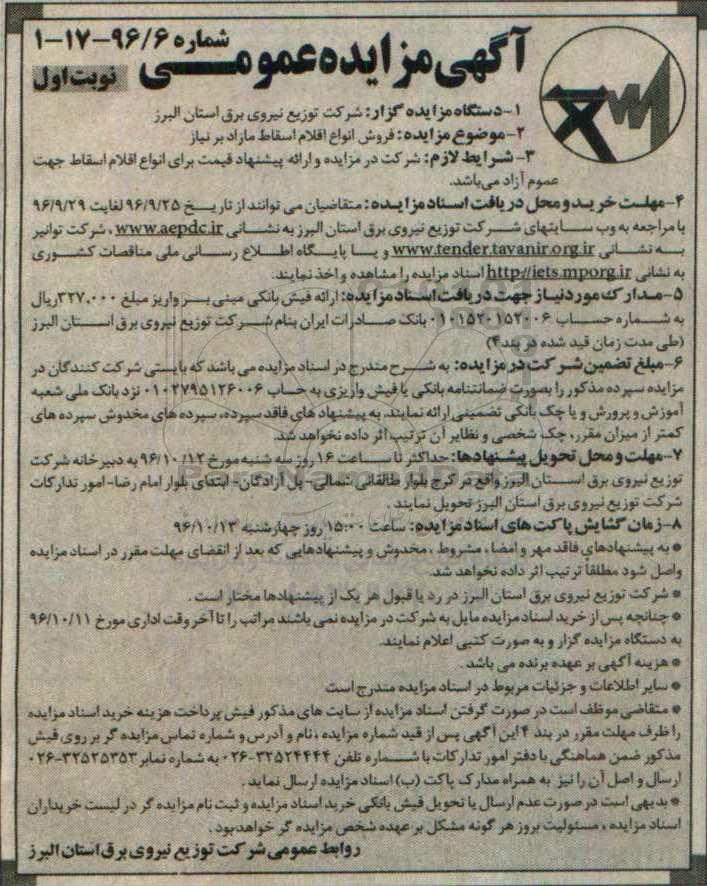 آگهی مزایده عمومی
شماره ۹۶/۶-۱۷-۱
نوبت اول
۱-دستگاه مزایده گزار: شرکت توزیع نیروی برق استان البرز
۲-موضوع مزایده: فروش انواع اقلام اسقاط مازاد بر نیاز
۳- شرایط لازم: شرکت در مزایده و ارائه پیشنهاد قیمت برای انواع اقلام اسقاط جهت
عموم آزاد می‌باشد.
۴-مهلت خرید و محل دریافت اسناد مزایده: متقاضیان می توانند از تاریخ ۹۶/۹/۲۵ لغایت ۹۶/۹/۲۹
با مراجعه به وب سایتهای شرکت توزیع نیروی برق استان البرز به نشانی www.aepdc.ir ، شرکت توانیر
به نشانی www.tender.tavanir.org.ir و یا پایگاه اطلاع رسانی ملی مناقصات کشوری
به نشانی http://iets.mporg.ir اسناد مزایده را مشاهده و اخذ نمایند.
۵-مدارک مورد نیاز جهت دریافت اسناد مزایده: ارائه فیش بانکی مبنی بر واریز مبلغ ۳۲۷.۰۰۰ ریال
به شماره حساب ۰۱۰۱۵۲۰۱۵۲۰۰۶ بانک صادرات ایران بنام شرکت توزیع نیروی برق استان البرز
(طی مدت زمان قید شده در بند ۴)
۶-مبلغ تضمین شرکت در مزایده: به شرح مندرج در اسناد مزایده می باشد که بایستی شرکت کنندگان در
مزایده سپرده مذکور را بصورت ضمانتنامه بانکی یا فیش واریزی به حساب ۰۱۰۲۷۹۵۱۲۶۰۰۶ نزد بانک ملی شعبه
آموزش و پرورش و یا چک بانکی تضمینی ارائه نمایند. به پیشنهاد های فاقد سپرده، سپرده های مخدوش سپرده های
کمتر از میزان مقرر، چک شخصی و نظایر آن ترتیب اثر داده نخواهد شد.
۷-مهلت و محل تحویل پیشنهادها: حداکثر تا ساعت ۱۶ روز سه شنبه مورخ ۹۶/۱۰/۱۲ به دبیرخانه شرکت
توزیع نیروی برق استان البرز واقع در کرج بلوار طالقانی شمالی- پل آزادگان- ابتدای بلوار امام رضا- امور تدارکات
شرکت توزیع نیروی برق استان البرز تحویل نمایند.
۸-زمان گشایش پاکت های اسناد مزایده: ساعت ۱۵:۰۰ روز چهارشنبه ۹۶/۱۰/۱۳
* به پیشنهادهای فاقد مهر و امضا، مشروط ، مخدوش و پیشنهادهایی که بعد از انقضای مهلت مقرر در اسناد مزایده
واصل شود مطلقا ترتیب اثر داده نخواهد شد.
* شرکت توزیع نیروی برق استان البرز در رد یا قبول هر یک از پیشنهادها مختار است .
* چنانچه پس از خرید اسناد مزایده مایل به شرکت در مزایده نمی باشند مراتب را تا آخر وقت اداری مورخ ۹۶/۱۰/۱۱
به دستگاه مزایده گزار و به صورت کتبی اعلام نمایند.
* هزینه آگهی بر عهده برنده می باشد .
* سایر اطلاعات و جزئیات مربوط در اسناد مزایده مندرج است
* متقاضی موظف است در صورت گرفتن اسناد مزایده از سایت های مذکور فیش پرداخت هزینه خرید اسناد مزایده
را ظرف مهلت مقرر در بند ۴ این آگهی پس از قید شماره مزایده ، نام و آدرس و شماره تماس مزایده گر بر روی فیش
مذکور ضمن هماهنگی با دفتر امور تدارکات با شماره تلفن ۳۲۵۲۴۴۴۴-۰۲۶ به شماره نمابر ۳۲۵۲۵۳۵۳-۰۲۶
ارسال و اصل آن را نیز به همراه مدارک پاکت (ب) اسناد مزایده ارسال نماید .
* بدیهی است در صورت عدم ارسال یا تحویل فیش بانکی خرید اسناد مزایده و ثبت نام مزایده گر در لیست خریداران
اسناد مزایده ، مسئولیت بروز هر گونه مشکل بر عهده شخص مزایده گر خواهد بود .
روابط عمومی شرکت توزیع نیروی برق استان البرز